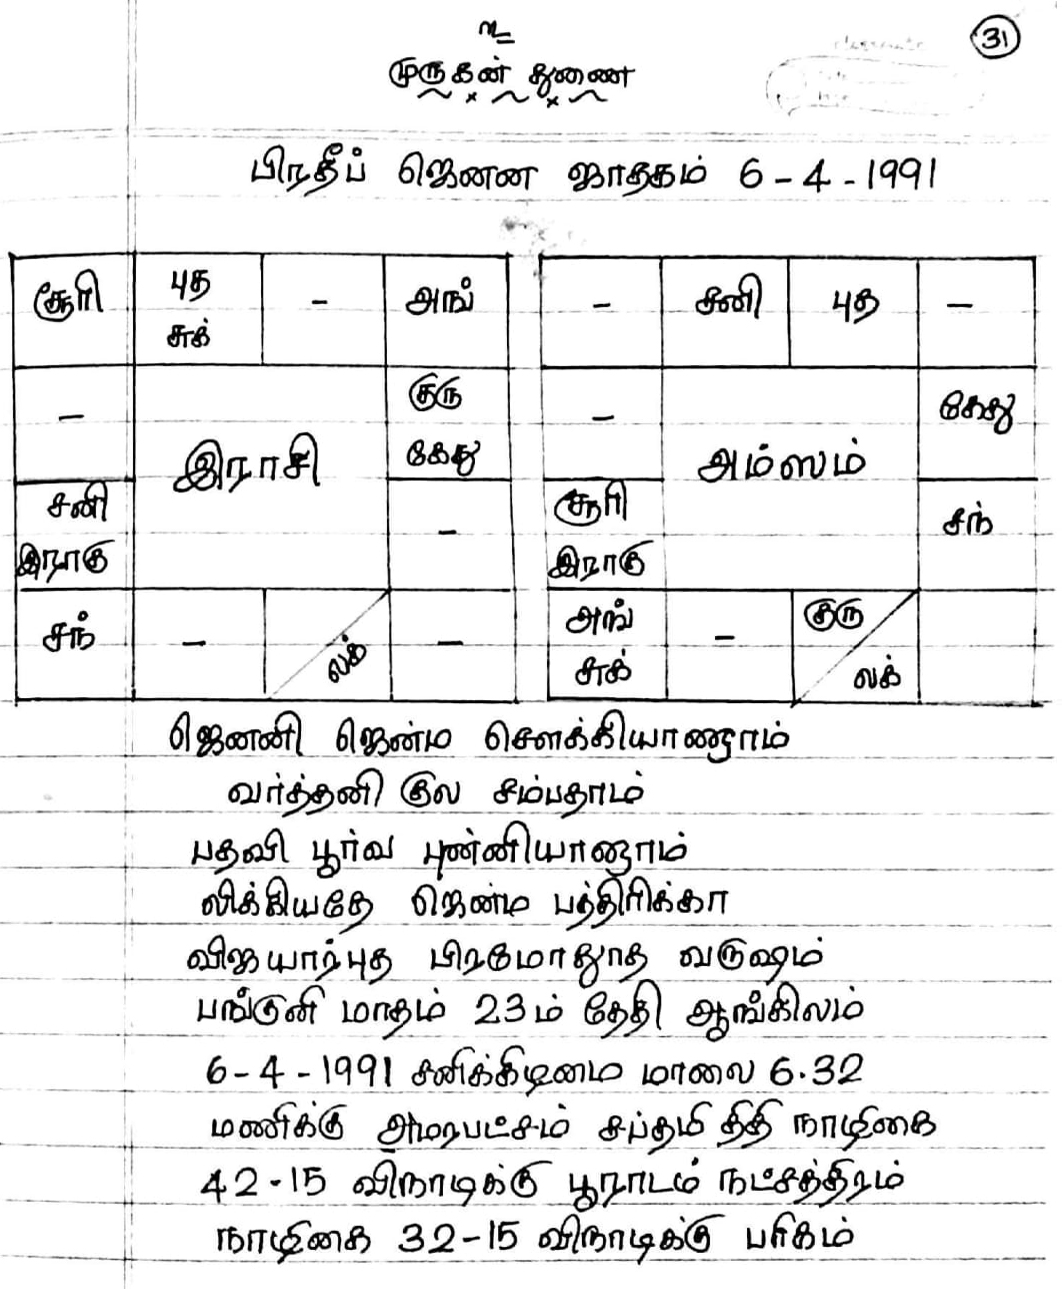 உ
31
முருகன் துணை
பிரதீப் ஜெனன ஜாதகம் 6-4-1991
சூரி புத சுக் - அங்
- குரு கேது
இராசி
சனி இராகு -
சந் - லக் -
- சனி புத -
- கேது
அம்ஸம்
சூரி இராகு சந்
அங் சுக் - குரு லக்
ஜெனனி ஜென்ம சௌக்கியாணாம்
வர்த்தனி குல சம்பதாம்
பதவி பூர்வ புண்னியானாம்
லிக்கியதே ஜென்ம பத்திரிக்கா
விஜயார்புத பிரமோதூத வருஷம்
பங்குனி மாதம் 23ம் தேதி ஆங்கிலம்
6-4-1991 சனிக்கிழமை மாலை 6.32
மணிக்கு அமரபட்சம் சப்தமி திதி நாழிகை
42-15 விநாடிக்கு பூராடம் நட்சத்திரம்
நாழிகை 32-15 விநாடிக்கு பரிகம்